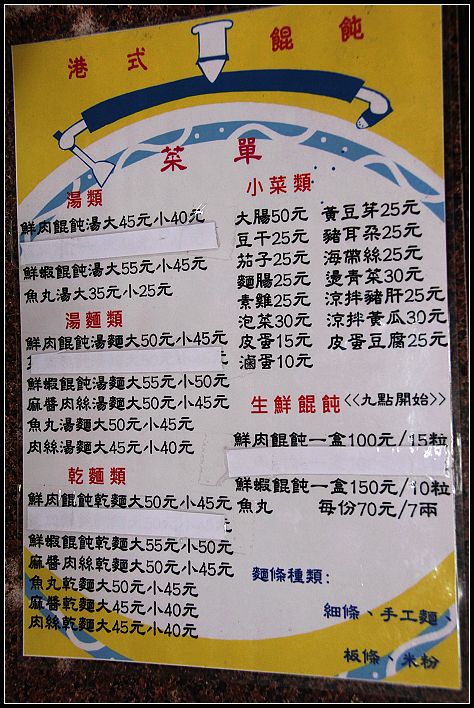 港式餛飩
菜單
湯類
鮮肉餛飩湯大45元小40元
鮮蝦餛飩湯大55元小45元
魚丸湯大35元小25元
湯麵類
鮮肉餛飩湯麵大50元小45元
鮮蝦餛飩湯麵大55元小50元
麻醬肉絲湯麵大50元小45元
魚丸湯麵大50元小45元
肉絲湯麵大45元小40元
乾麵類
鮮肉餛飩乾麵大50元小45元
鮮蝦餛飩乾麵大55元小50元
麻醬肉絲乾麵大50元小45元
魚丸乾麵大50元小45元
麻醬乾麵大45元小40元
肉絲乾麵大45元小40元
小菜類
大腸50元 黃豆芽25元
豆干25元 豬耳朶25元
茄子25元 海帶絲25元
麵腸25元 燙青菜30元
素雞25元 涼拌豬肝25元
泡菜30元 涼拌黃瓜30元
皮蛋15元 皮蛋豆腐25元
滷蛋10元
生鮮餛飩<<九點開始>>
鮮肉餛飩一盒100元/15粒
鮮蝦餛飩一盒150元/10粒
魚丸 每份70元/7兩
麵條種類:
細條、手工麵、
板條、米粉